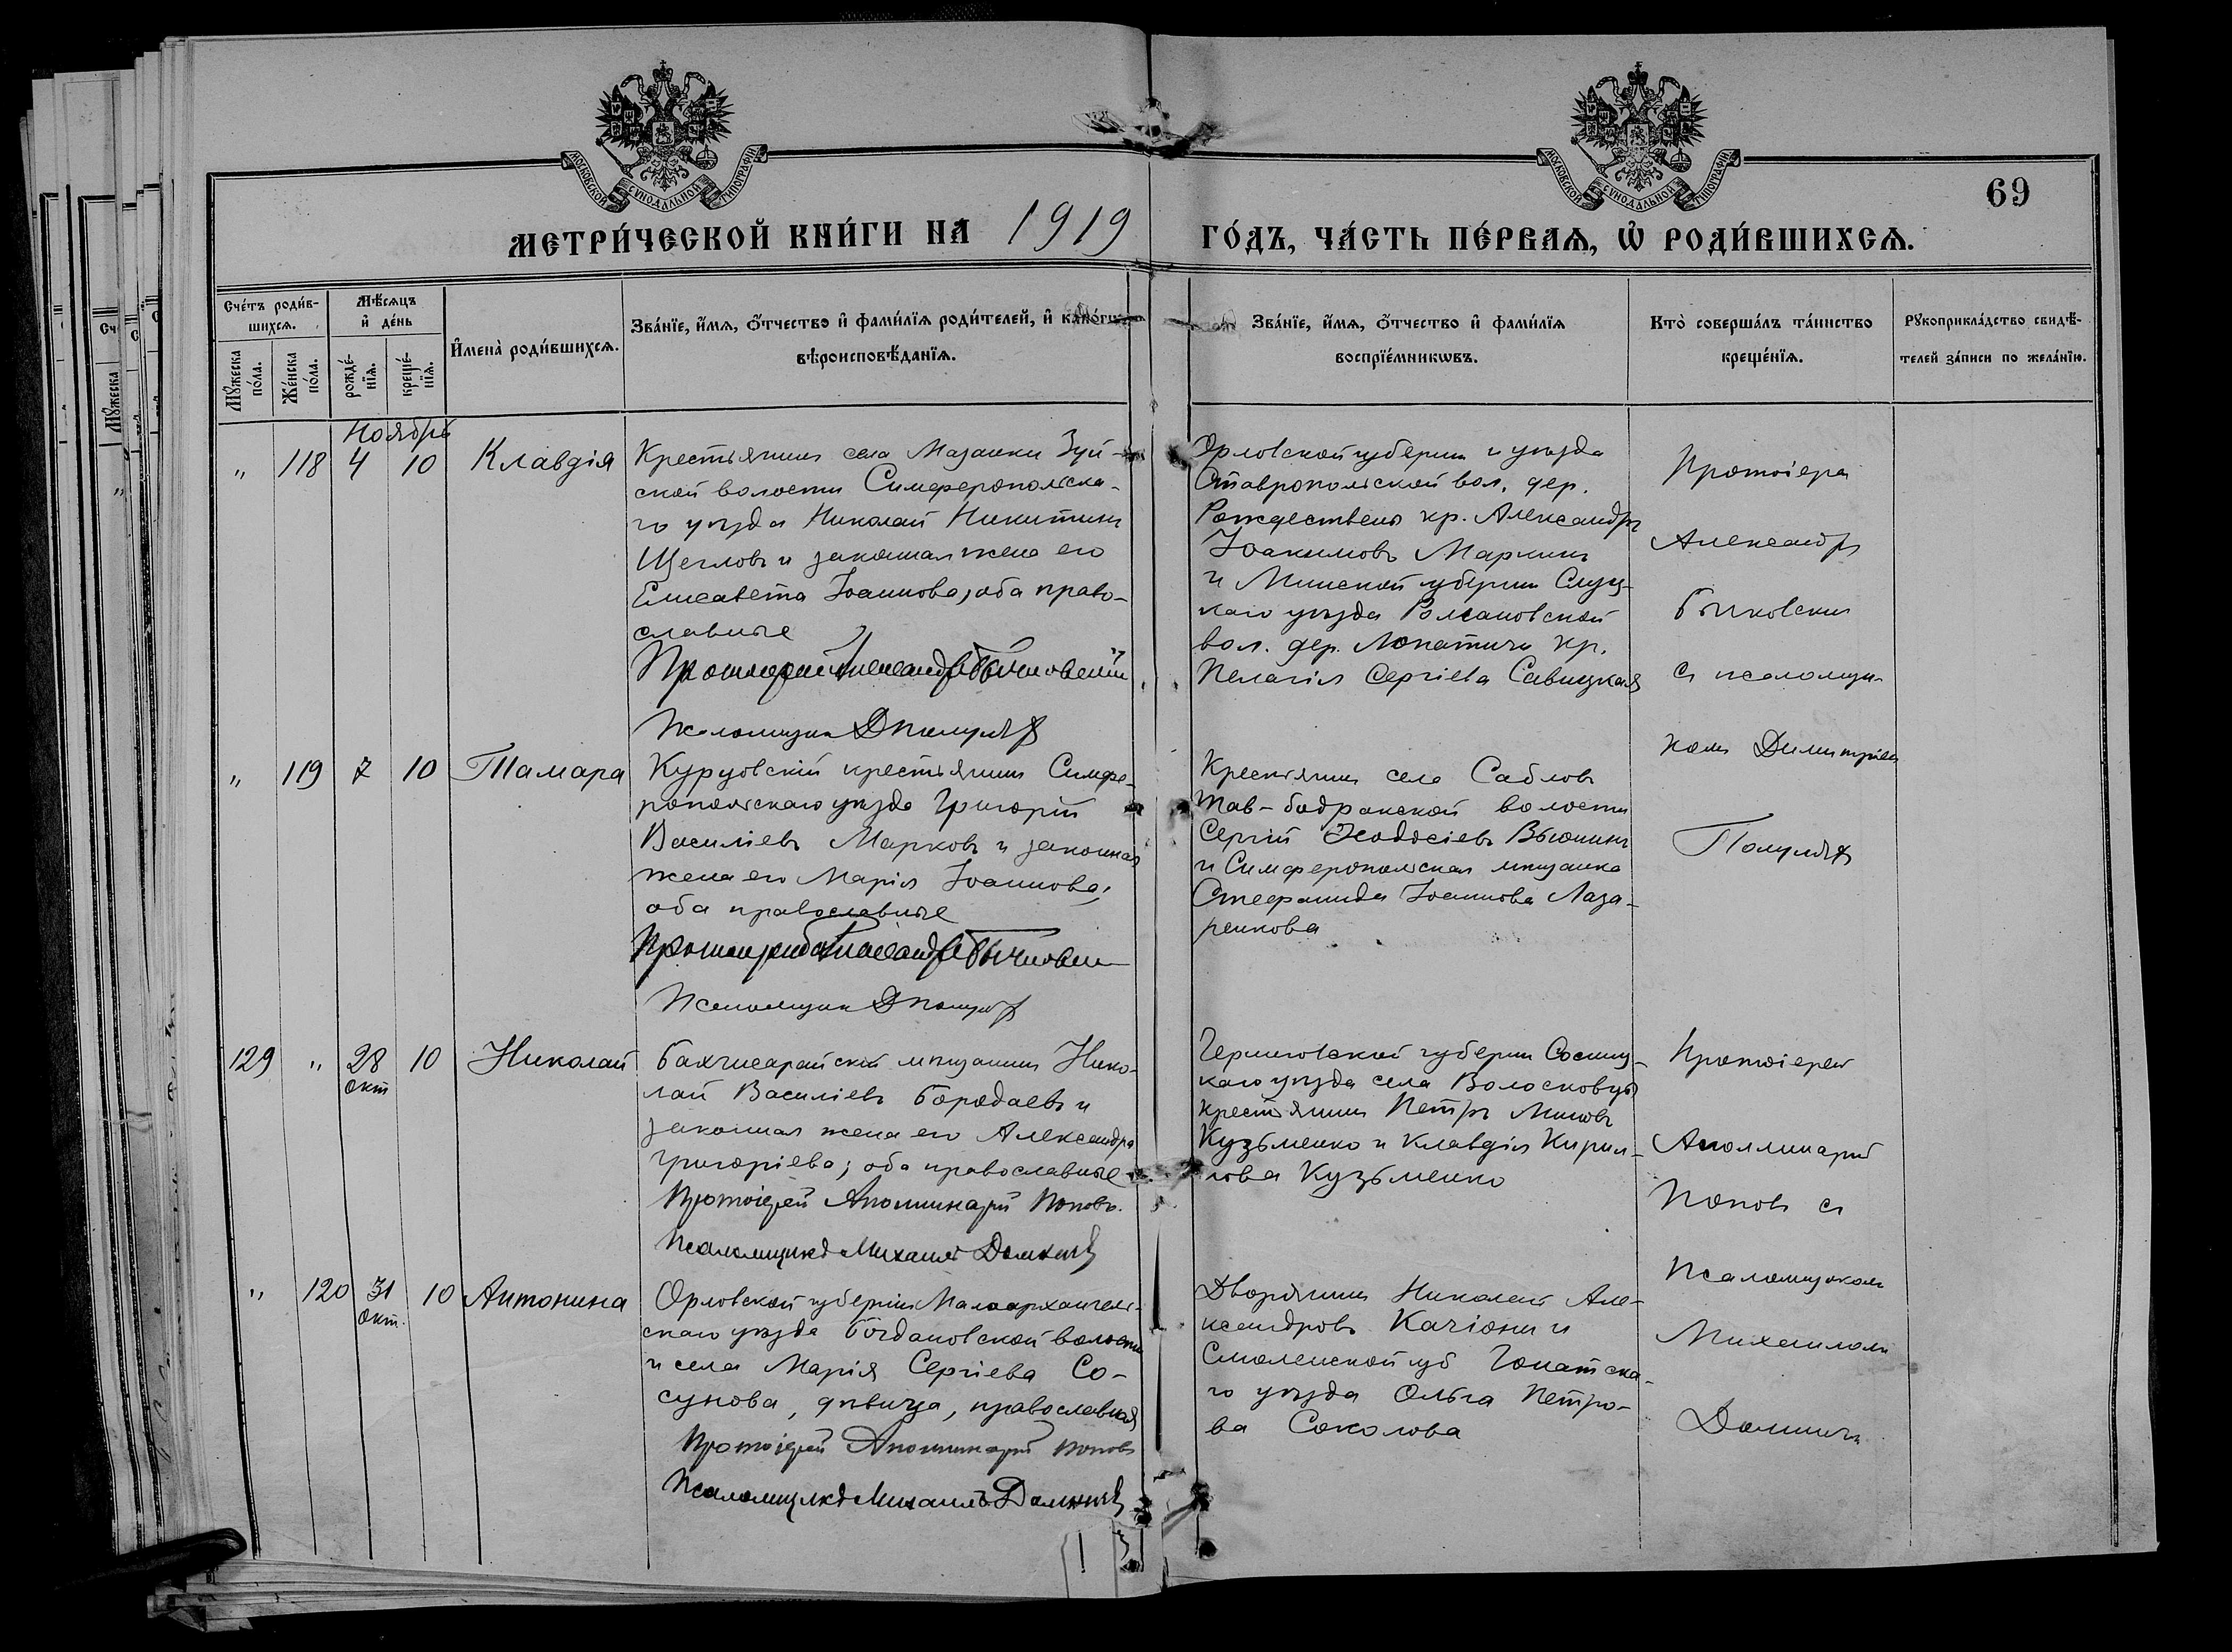 МОСКОВСКОЙ СѴНОДАЛЬНОЙ ТИПОГРАФІИ
МОСКОВСКОЙ СѴНОДАЛЬНОЙ ТИПОГРАФІИ
69
МЕТРИ́ЧЕСКОЙ КНИ́ГИ НА 1919 ГО́ДЪ, ЧА́СТЬ ПЕ́РВАѦ, Ѡ҆ РОДИ́ВШИХСѦ.
Сче́тъ роди́в-
шихсѧ.
Мѣ́сѧцъ
и҆ де́нь
Мꙋ́жеска
по́ла.
Же́нска
по́ла.
рожде́-
нїѧ.
креще́-
нїѧ.
И҆мена̀ роди́вшихсѧ.
Зва́нїе, и҆́мѧ, ѻ҆́тчество и҆ фами́лїѧ роди́телей, и҆ како́гѡ
вѣроисповѣ́данїѧ.
Зва́нїе, и҆́мѧ, ѻ҆́тчество и҆ фами́лїѧ
воспрїе́мникѡвъ.
Кто̀ соверша́лъ та́инство
креще́нїѧ.
Рꙋкоприкла́дство свидѣ́-
телей за́писи по жела́нїю.
Ноябрь
" 118 4 10 Клавдія
Крестьянинъ села Мазанки Зуй-
ской волости Симферопольска-
го уѣзда Николай Никитинъ
Щегловъ и законная жена его
Елисавета Іоаннова, оба право-
славные
Протоіерей Александръ Бычковскій
Псаломщикъ Д Полулях
Орловской губерніи и уѣзда
Ставропольской вол. дер.
Рождествено кр. Александръ
Іоакимовъ Маринъ
и Минской губерніи Слуц-
каго уѣзда Романовской
вол. дер. Лопатичи кр.
Пелагія Сергіева Савицкая
Протоіерей
Александръ
Бычковскій
съ псаломщи-
комъ Димитріемъ
Полулях
" 119 7 10 Тамара
Курцовскій крестьянинъ Симфе-
ропольскаго уѣзда Григорій
Василіевъ Марковъ и законная
жена его Марія Іоаннова;
оба православные
Протоіерей Александръ Бычковскій
Псаломщикъ Д Полулях
Крестьянинъ села Сабловъ
Тав-бодракской волости
Сергій Ѳеодосіевъ Вьюнинъ
и Симферопольская мѣщанка
Стефанида Іоаннова Лаза-
ренкова
129 " 28 10 Николай
Окт
Бахчисарайскій мѣщанинъ Нико-
лай Василіевъ Бородаевъ и
законная жена его Александра
Григоріева; оба православные
Протоіерей Аполлинарій Поповъ.
Псаломщикъ Михаилъ Домничъ
Черниговской губерніи Сосниц-
каго уѣзда села Волосковцы
крестьянинъ Петръ
Кузьменко и Клавдія Кирил-
лова Кузьменко
Протоіерей
Аполлинарій
Поповъ съ
Псаломщикомъ
Михаиломъ
Домничъ
" 120 31 10 Антонина
Окт.
Орловской губерніи Малоархангель-
скаго уѣзда Богдановской волости
и села Марія Сергіева Со-
сунова, дѣвица, православная
Протоіерей Аполлинарій Поповъ
Псаломщикъ Михаилъ Домничъ
Дворянинъ Николай Але-
ксандровъ Качіони и
Смоленской губ
го уѣзда Ольга Петро-
ва Соколова